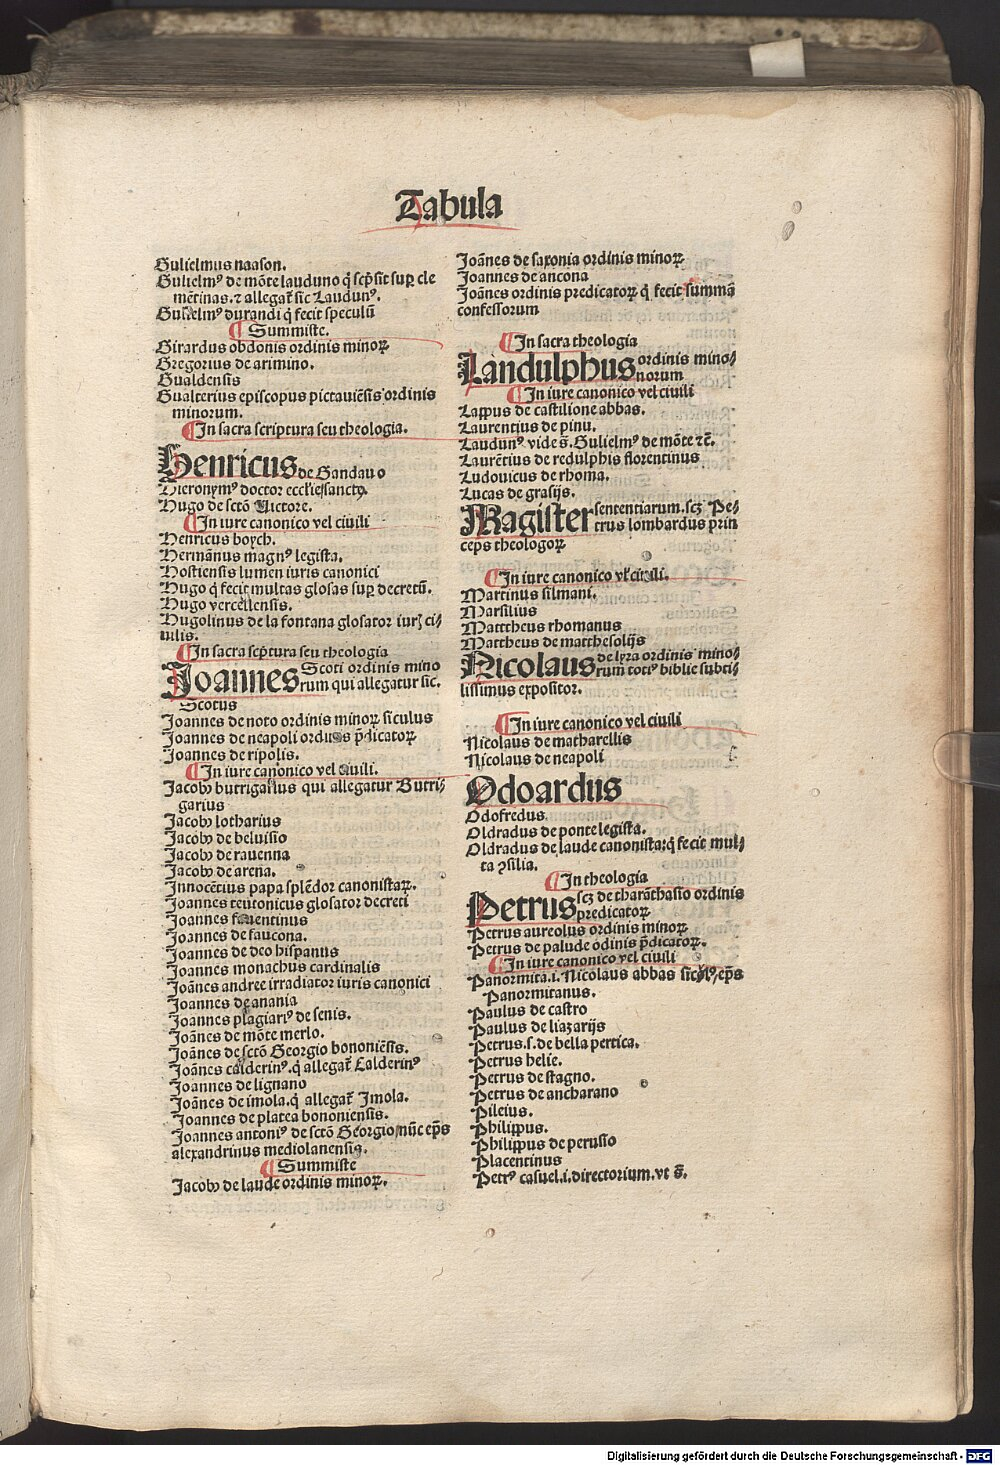 Tabula
Gulielmus naason.
Gulielmꝰ de mõte lauduno q̃ scp̃sit suꝑ cle
mẽtinas.⁊ allegat̃ sic Laudunꝰ.
Gulielmꝰ durandi q̃ fecit speculũ
¶ Summiste.
Girardus obdonis ordinis minoꝝ
Gregorius de arimino.
Gualdensis
Gualterius episcopus pictauiẽsis ordinis
minorum.
¶ In sacra scriptura seu theologia.
Henricus de Gandauo
Hieronymꝰ doctor ecclie
Hugo de sctõ Victore.
¶ In iure canonico vel ciuili
Henricus boych.
Hermãnus magnꝰ legista.
Hostiensis lumen iuris canonici
Hugo q̃ fecit multas glosas suꝑ decretũ.
Hugo vercellensis.
Hugolinus de la fontana glosator iurꝭ ci⸗
uilis.
¶ In sacra scp̃tura seu theologia
Joannes Scoti ordinis mino
rum qui allegatur sic.
Scotus
Joannes de noto ordinis minoꝝ siculus
Joannes de neapoli ordinis p̃dicatoꝝ
Joannes de ripolis.
¶ In iure canonico vel ciuili.
Jacob⁹ butrigarius qui allegatur Butri⸗
garius
Jacob⁹ lotharius
Jacob⁹ de beluisio
Jacob⁹ de rauenna
Jacob⁹ de arena.
Innocẽtius papa splẽdor canonistaꝝ.
Joannes teutonicus glosator decreti
Joannes fauentinus
Joannes de faucona.
Joannes de deo hispanus
Joannes monachus cardinalis
Joãnes andree irradiator iuris canonici
Joannes de anania
Joannes plagiariꝰ de senis.
Joãnes de mõte merlo.
Joãnes de sctõ Georgio bononiẽsis.
Joãnes calderinꝰ.q̃ allegat̃ Calderinꝰ
Joannes de lignano
Joãnes de imola.q̃ allegat̃ Imola.
Joannes de platea bononiensis.
Joannes antoniꝰ de sctõ Georgio nũc ep̃s
alexandrinus mediolanensis.
¶ Summiste
Jacob⁹ de laude ordinis minoꝝ.
Joãnes de saxonia ordinis minoꝝ
Joannes de ancona
Joãnes ordinis predicatoꝝ q̃ fecit summã
confessorum
¶ In sacra theologia
Landulphus ordinis mino⸗
norum
¶ In iure canonico vel ciuili
Lappus de castilione abbas.
Laurentius de pinu.
Laudunꝰ vide s̃. Gulielmꝰ de mõte ⁊c̃.
Laurẽtius de redulphis florentinus
Ludouicus de rhoma.
Lucas de grasijs.
Magister sententiarum.scꝫ Pe⸗
trus lombardus prin
ceps theologoꝝ
¶ In iure canonico vl̃ ciuili.
Martinus silmani.
Marsilius
Mattheus rhomanus
Mattheus de matthesolijs
Nicolaus de lyra ordinis mino⸗
rum totiꝰ biblie subti⸗
lissimus expositor.
¶ In iure canonico vel ciuili
Nicolaus de matharellis
Nicolaus de neapoli
Odoardus
Odofredus.
Oldradus de ponte legista.
Oldradus de laude canonista:q̃ fecit mul⸗
ta ꝯsilia.
¶ In theologia
Petrus scꝫ de tharãthasio ordinis
predicatoꝝ
Petrus aureolus ordinis minoꝝ
Petrus de palude odinis p̃dicatoꝝ.
¶ In iure canonico vel ciuili
Panormita.i. Nicolaus abbas ep̃s
Panormitanus.
Paulus de castro
Paulus de liazarijs
Petrus.s.de bella pertica.
Petrus helie.
Petrus de stagno.
Petrus de ancharano
Pileius.
Philippus.
Philippus de perusio
Placentinus
Petrꝰ casuel.i.directorium.vt s̃.
Digitalisierung gefördert durch die Deutsche Forschungsgemeinschaft - DFG